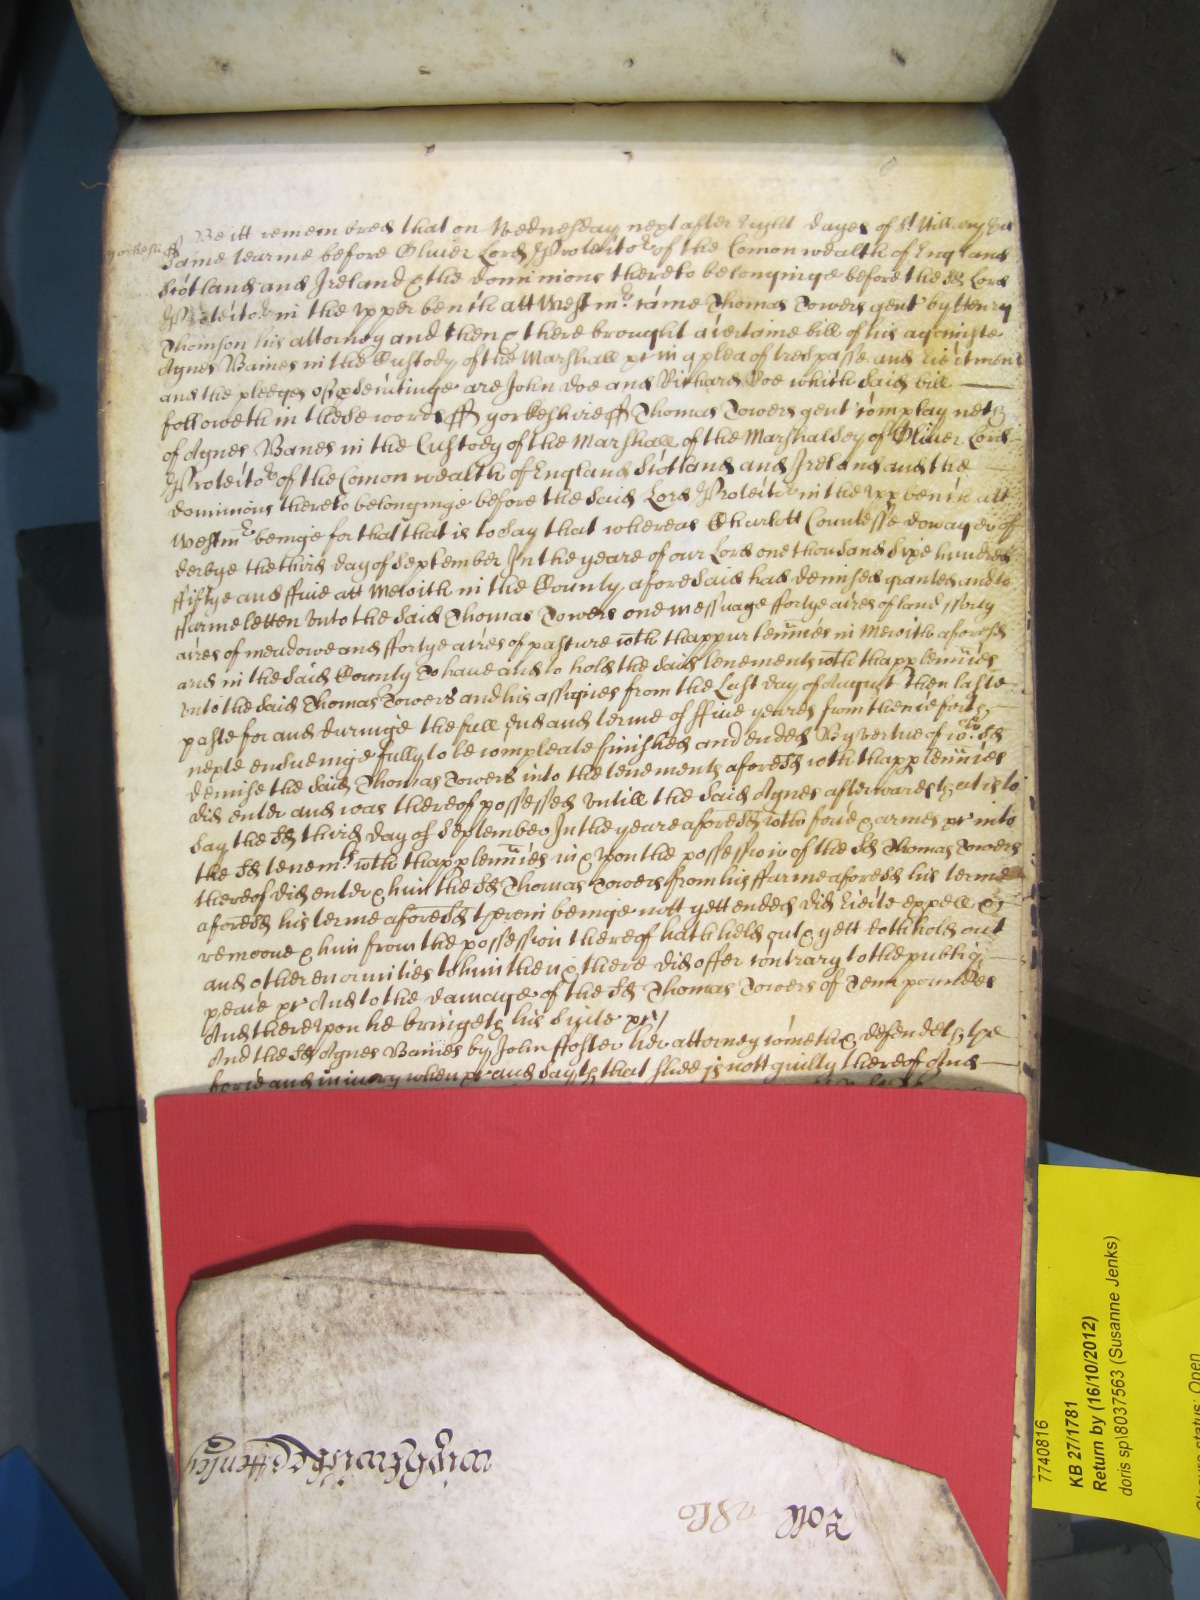 yorkesh ss Be itt remembred that on Wednesday next after Eight dayes of St Hillary this
same tearme before Oliver Lord Protector of the Comon wealth of England
Scotland and Ireland & the dominions thereto belonginge before the sd Lord
Protector in the upper bench att Westmr came Thomas Towers gent by Henry
Thomson his attorney and then & there brought a certaine bill of his against
Agnes Baines in the Custody of the Marshall &c in a plea of trespasse and Eiectment
and the pledges of prosecutinge are John doe and Richard Roe which said bill
followeth in these words ss yorkeshire ss Thomas Towers gent complayneth
of Agnes Banes in the Custody of the Marshall of the Marshalsey of Oliver Lord
Protector of the Comon wealth of England Scotland and Ireland and the
dominions thereto belonginge before the said Lord Protector in the upp bench att
Westmr beinge for that that is to say that whereas Charlott Countesse dowager of
derbye the third day of September In the yeare of our Lord one thousand sixe hundred
ffiftye and ffive att Mewith in the County aforesaid had demised granted and to
ffarme letten unto the said Thomas Towers one messuage ffortye acres of land fforty
acres of meadowe and ffortye acres of pasture wth thappurtennces in Mewith aforesd
and in the said County To have and to hold the said tenements wth thapptennces
unto the said Thomas Towers and his assignes from the Last day of August then laste
paste for and duringe the full End and terme of ffive yeares from thence forth
nexte ensueinge fully to be compleate finished and ended By vertue of wch sd
demise the said Thomas Towers into the tenements aforesd wth thapptennces
did enter and was thereof possessed untill the said Agnes afterwards that is to
say the sd third day of September In the yeare aforesd wth force & armes &c into
the sd tenemts wth thapptennces in & upon the possession of the sd Thomas Towers
thereof did enter & him the sd Thomas Towers from his ffarme aforesd his terme
aforesd his terme aforesd therein beinge nott yett ended did Eiecte expell &
remoove & him from the possession thereof hath held out & yett doth hold out
and other enormities to him then & there did offer contrary to the publiq
peace &c And to the damage of the sd Thomas Towers of Tenn poundes
And thereupon he bringeth his suite &c
And the sd Agnes Baines by John ffoster her attorney cometh & defendeth the
force and iniury when &c and sayth that shee is nott guilty thereof And
Roll
7740816
KB 27/1781
Return by (16/10/2012)
doris sp\8037563 (Susanne Jenks)
Closure status: Open